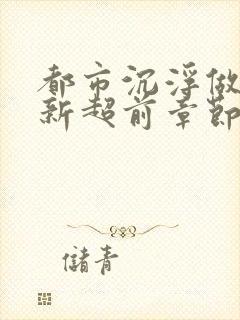 都市沉浮做
新超前章節
儲青